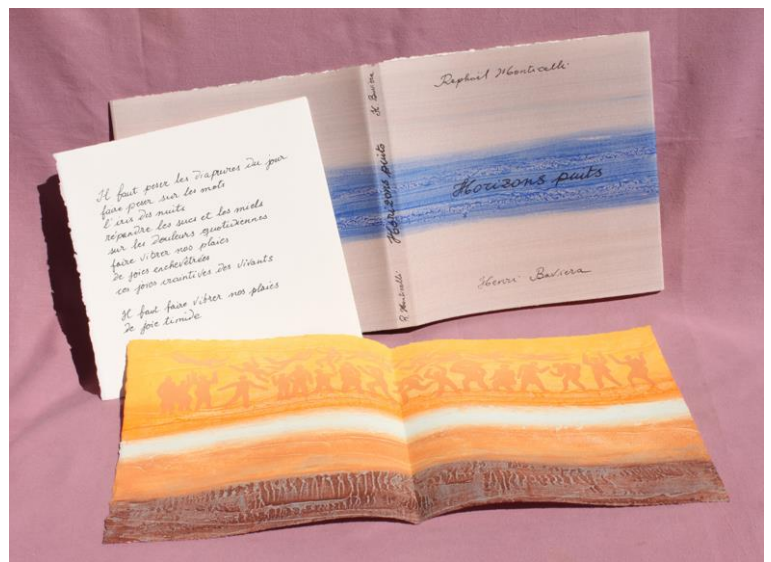 Il faut poser les diaprures du jour
faire peser sur les mots
l'iris des nuits
répandre les sucs et les miels
sur les douleurs quotidiennes
faire vibrer nos plaies
de joies enchevêtrées
ces joies des vivants
Il faut faire vibrer nos plaies
de joie timide
R. Monticelli
Horizons puits
H. Baviera
Raphaël Monticelli
Horizons puits
Henri Baviera